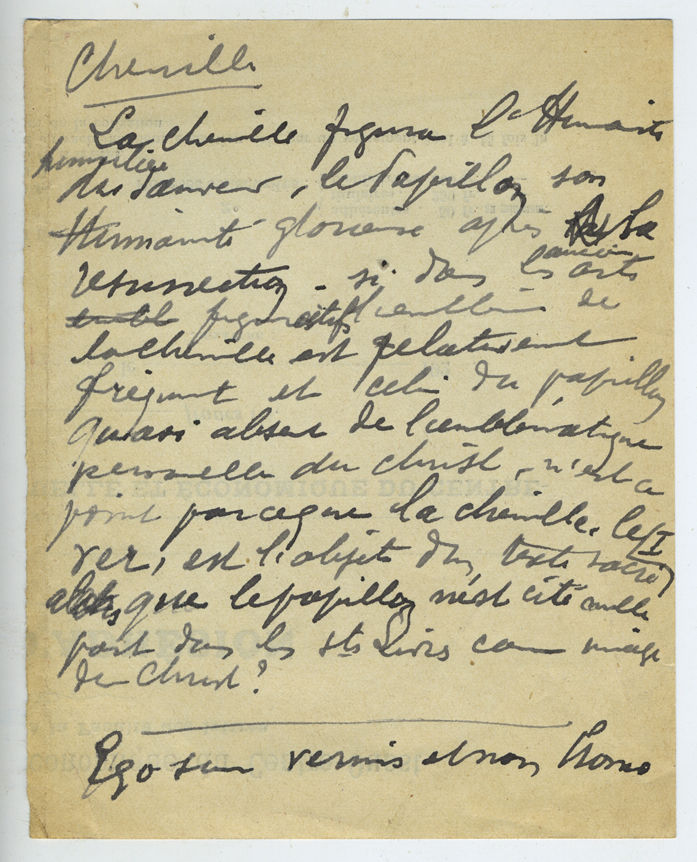 Chenille
La chenille figura l'Humanité
humiliée
du Sauveur, le Papillon son
Humanité glorieuse après la
resurrection - si dans les anciens arts
figuratifs l'emblème de
la chenille est relativement
fréquent et celui du papillon
quasi absent de l'emblématique
personnelle du Christ, n'est ce
point parceque la chenille, le
ver, est l'objet d'un texte sacré
alors que le papillon n'est cité nulle
part dans les sts Livres comme image
du Christ?
Ego sum vermis et non homo